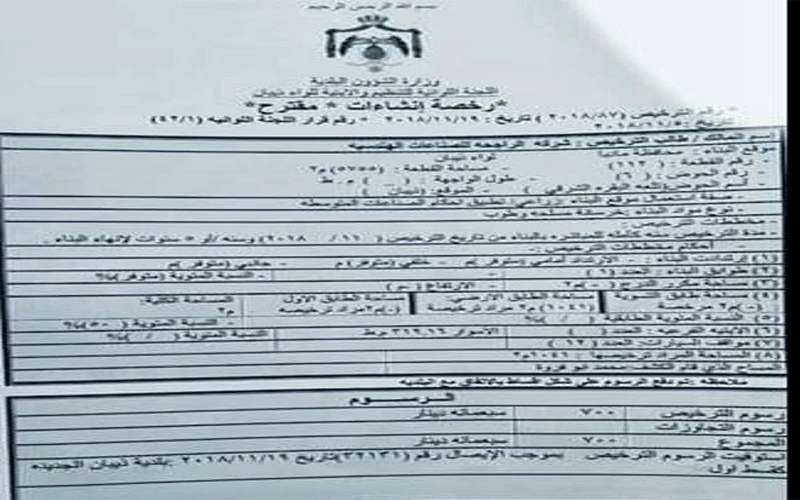 بسم الله الرحمن الرحيم
وزارة الشؤون البلدية
اللجنة اللوائية للتنظيم والابنية للواء ذيبان
*رخصة إنشاءات * مقترح*
- رقم الترخيص (٢٠١٨/٨٧) تاريخ : ٢٠١٨/١١/١٩ - رقم قرار اللجنة اللوائيه (٤٢/١)
تاريخ ٢٠١٨/١١/٥
اسم المالك / طالب الترخيص : شركه الراجحه للصناعات الهندسيه
موقع البناء : محافظة مادبا لواء ذيبان
- رقم القطعة : (١١٢) - مساحة القطعة : (٥٧٥٥) م٢
- رقم الحوض : (٦) - طول الواجهة : ( - ) م . ط
- اسم الحوض( الشرقي ) - الموقع: (ذيبان )
- صفة استعمال موقع البناء :زراعي/ تطبق احكام الصناعات المتوسطه
- نوع مواد البناء :خرسانة مسلحه وطوب
- مخططات الترخيص :
مدة الترخيص سنه كامله للمباشره بالبناء من تاريخ الترخيص ( /١١ /٢٠١٨) وسنه /او ٥ سنوات لإنهاء البناء .
- أحكام مخططات الترخيص :-
(١) إرتدادت البناء : - الارتداد أمامي (متوفر )م - خلفي (متوفر) م - جانبي (متوفر)م
(٢) طوابق البناء : العدد (١ ) - النسبة المئوية (متوفر)%
(٣) مساحة مكرر الدرج (-)م٢ - الارتفاع (-م)
(٤) مساحة طابق التسوية (-)م٢ مرخصة
مساحة الطابق الارضي: (١٠٤١)م٢ مراد ترخيصة
مساحة الطابق الاول (-)م٢ مراد ترخيصه
المساحة الكلية: م٢
(٥) النسبة المئوية الطابقية ( / )% - النسبة المئوية ( ٥٠-)%
(٦) الابنيه الفرعيه : العدد ( ) الاسوار ٣١٩,١٦ م.ط النسبة المئوية ( / )%
(٧) مواقف السيارات: العدد (١٢ )
(٨) المساحة المراد ترخيصها : ١٠٤١م٢
المساح الذي قام الكشف:محمد ابو قزوة
ملاحظه :تم دفع الرسوم على شكل اقساط بالاتفاق مع البلديه
الرسوم
رسوم الترخيص ٧٠٠ سبعمائه دينار
رسوم التجاوزات
المجموع ٧٠٠ سبعمائه دينار
استوفيت الرسوم الترخيص بموجب الإيصال رقم (٣٢١٣١)تاريخ ٢٠١٨/١١/١٩ :بلدية ذيبان الجديده
كقسط اول